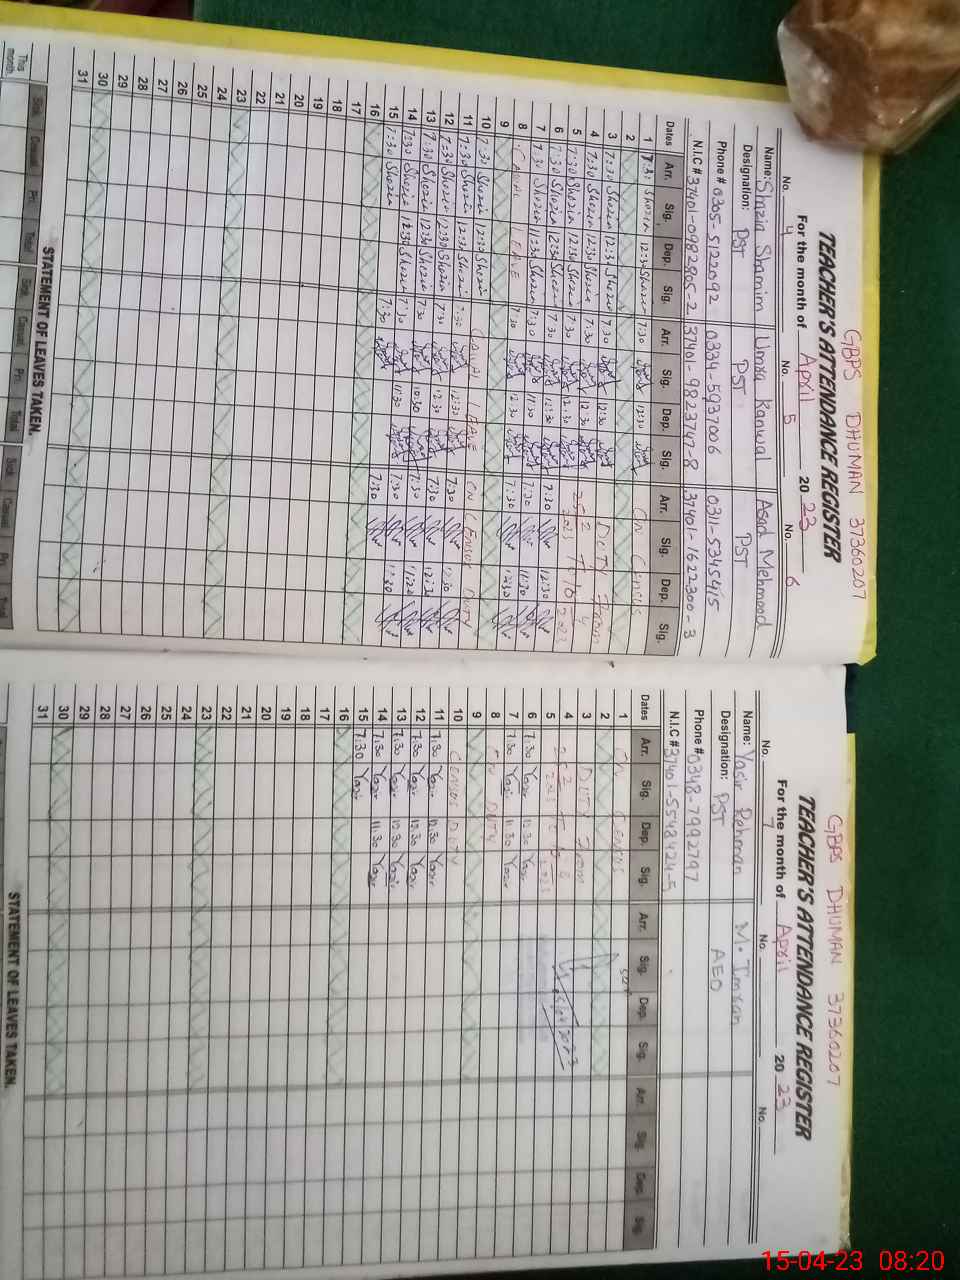 GBPS DHUMAN 37360207
TEACHER'S ATTENDANCE REGISTER
For the month of April 2023
No. 4 No. 5 No. 6
Name: Shazia Shamim Umra Kanwal Asad Mehmood
Designation: PST PST PST
Phone # 0305-5122092 0334-5937006 0311-5345415
N.I.C # 37401-0982905-2 37401-9823747-8 37401-1622300-3
Dates Arr. Sig. Dep. Sig. Arr. Sig. Dep. Sig. Arr. Sig. Dep. Sig.
1 7:30 Shazia 12:30 Shazia 7:30 12:30 On Census
2
3 7:30 Shazia 12:30 Shazia 7:30 12:30 DUTY From
4 7:30 Shazia 12:30 Shazia 7:30 12:30
5 7:30 Shazia 12:30 Shazia 7:30 12:30
6 7:30 Shazia 12:30 Shazia 7:30 12:30 7:30 12:30
7 7:30 Shazia 11:30 Shazia 7:30 11:30 7:30 11:30
8 CAUAL LEAVE 7:30 12:30 7:30 12:30
9
10 7:30 Shazia 12:30 Shazia CAUAL LEAVE ON CENSOS DUTY
11 7:30 Shazia 12:30 Shazia 7:30 12:30 7:30 12:30
12 7:30 Shazia 12:30 Shazia 7:30 12:30 7:30 12:30
13 7:30 Shazia 12:30 Shazia 7:30 12:30 7:30
14 7:30 Shazia 12:30 Shazia 7:30 7:30
15 7:30 Shazia 7:30 7:30
16
17
18
19
20
21
22
23
24
25
26
27
28
29
30
31
STATEMENT OF LEAVES TAKEN.
Sick Casual Pri. Total Sick Casual Pri. Total Sick Casual Pri. Total
This month
GBPS DHUMAN 37360207
TEACHER'S ATTENDANCE REGISTER
For the month of April 2023
No. 7 No. No.
Name: Yasir Rehman M. Imran
Designation: PST AEO
Phone # 0348-7992797
N.I.C # 37401-5548424-5
Dates Arr. Sig. Dep. Sig. Arr. Sig. Dep. Sig. Arr. Sig. Dep. Sig.
1 On Census
2
3 DUTY From
4
5
6 7:30 Yasir 12:30 Yasir
7 7:30 Yasir 11:30 Yasir
8 ON DUTY
9
10 CENSOS DUTY
11 7:30 Yasir 12:30 Yasir
12 7:30 Yasir 12:30 Yasir
13 7:30 Yasir 12:30 Yasir
14 7:30 Yasir 11:30 Yasir
15 7:30 Yasir
16
17
18
19
20
21
22
23
24
25
26
27
28
29
30
31
STATEMENT OF LEAVES TAKEN.
15-04-23 08:20